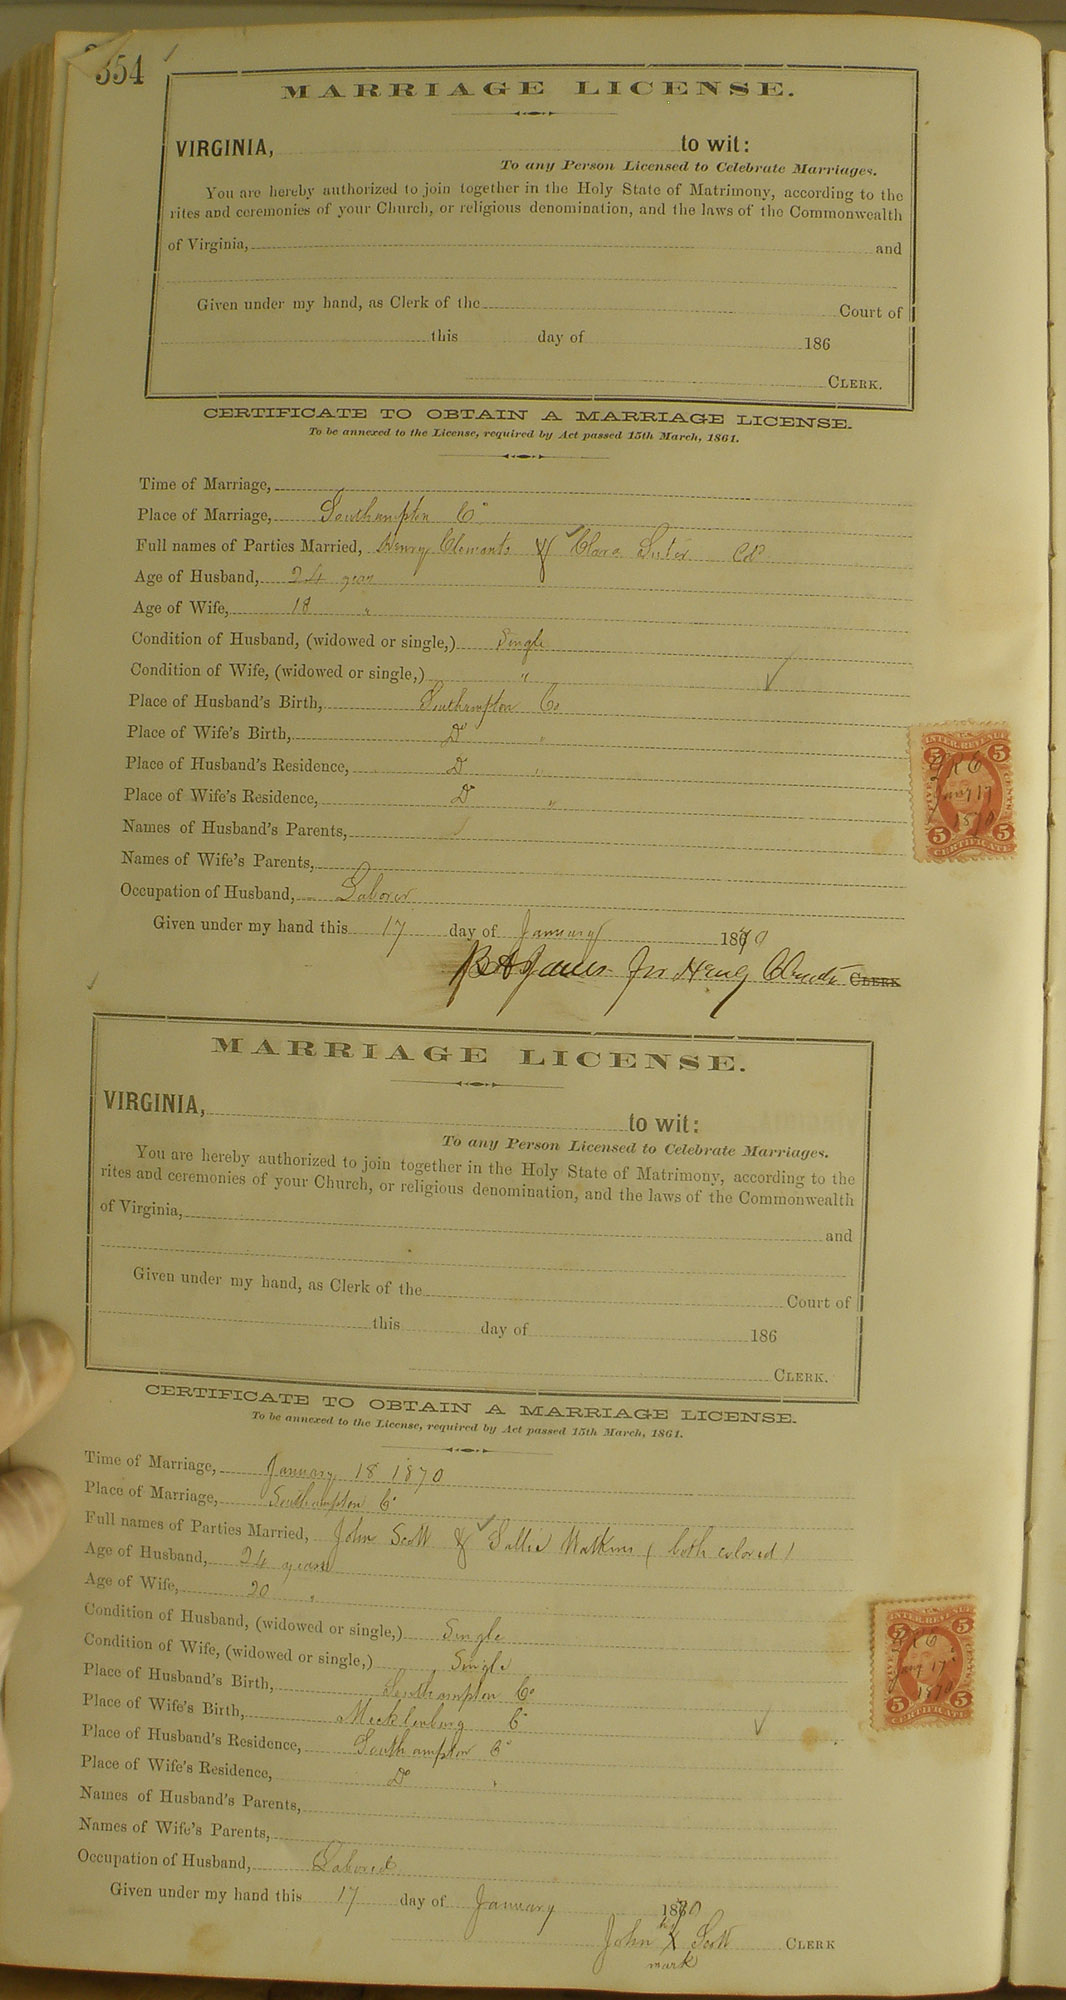 354
MARRIAGE LICENSE.
VIRGINIA, to wit:
To any Person Licensed to Celebrate Marriages.
You are hereby authorized to join together in the Holy State of Matrimony, according to the
rites and ceremonies of your Church, or religious denomination, and the laws of the Commonwealth
of Virginia, and
Given under my hand, as Clerk of the Court of
this day of 186
CLERK.
CERTIFICATE TO OBTAIN A MARRIAGE LICENSE.
To be annexed to the License, required by Act passed 15th March, 1861.
Time of Marriage,
Place of Marriage, Southampton Co
Full names of Parties Married, Henry Clements & Clara Suter Cd
Age of Husband, 24 years
Age of Wife, 18 "
Condition of Husband, (widowed or single,) Single
Condition of Wife, (widowed or single,) "
Place of Husband's Birth, Southampton Co
Place of Wife's Birth, Do "
Place of Husband's Residence, Do "
Place of Wife's Residence, Do "
Names of Husband's Parents,
Names of Wife's Parents,
Occupation of Husband, Laborer
Given under my hand this 17 day of January 1870
for Henry Clements CLERK
INTER. REVENUE
5 5
FIVE CENTS
Jany 17
1870
5 5
CERTIFICATE
MARRIAGE LICENSE.
VIRGINIA, to wit:
To any Person Licensed to Celebrate Marriages.
You are hereby authorized to join together in the Holy State of Matrimony, according to the
rites and ceremonies of your Church, or religious denomination, and the laws of the Commonwealth
of Virginia, and
Given under my hand, as Clerk of the Court of
this day of 186
CLERK.
CERTIFICATE TO OBTAIN A MARRIAGE LICENSE.
To be annexed to the License, required by Act passed 15th March, 1861.
Time of Marriage, January 18 1870
Place of Marriage, Southampton Co
Full names of Parties Married, John Scott & Sallie Watkins (both colored)
Age of Husband, 24 years
Age of Wife, 20 "
Condition of Husband, (widowed or single,) Single
Condition of Wife, (widowed or single,) Single
Place of Husband's Birth, Southampton Co
Place of Wife's Birth, Mecklenburg Co
Place of Husband's Residence, Southampton Co
Place of Wife's Residence, Do "
Names of Husband's Parents,
Names of Wife's Parents,
Occupation of Husband, Laborer
Given under my hand this 17 day of January 1870
his
John X Scott CLERK
mark
INTER. REVENUE
5 5
FIVE CENTS
Jany 17
1870
5 5
CERTIFICATE